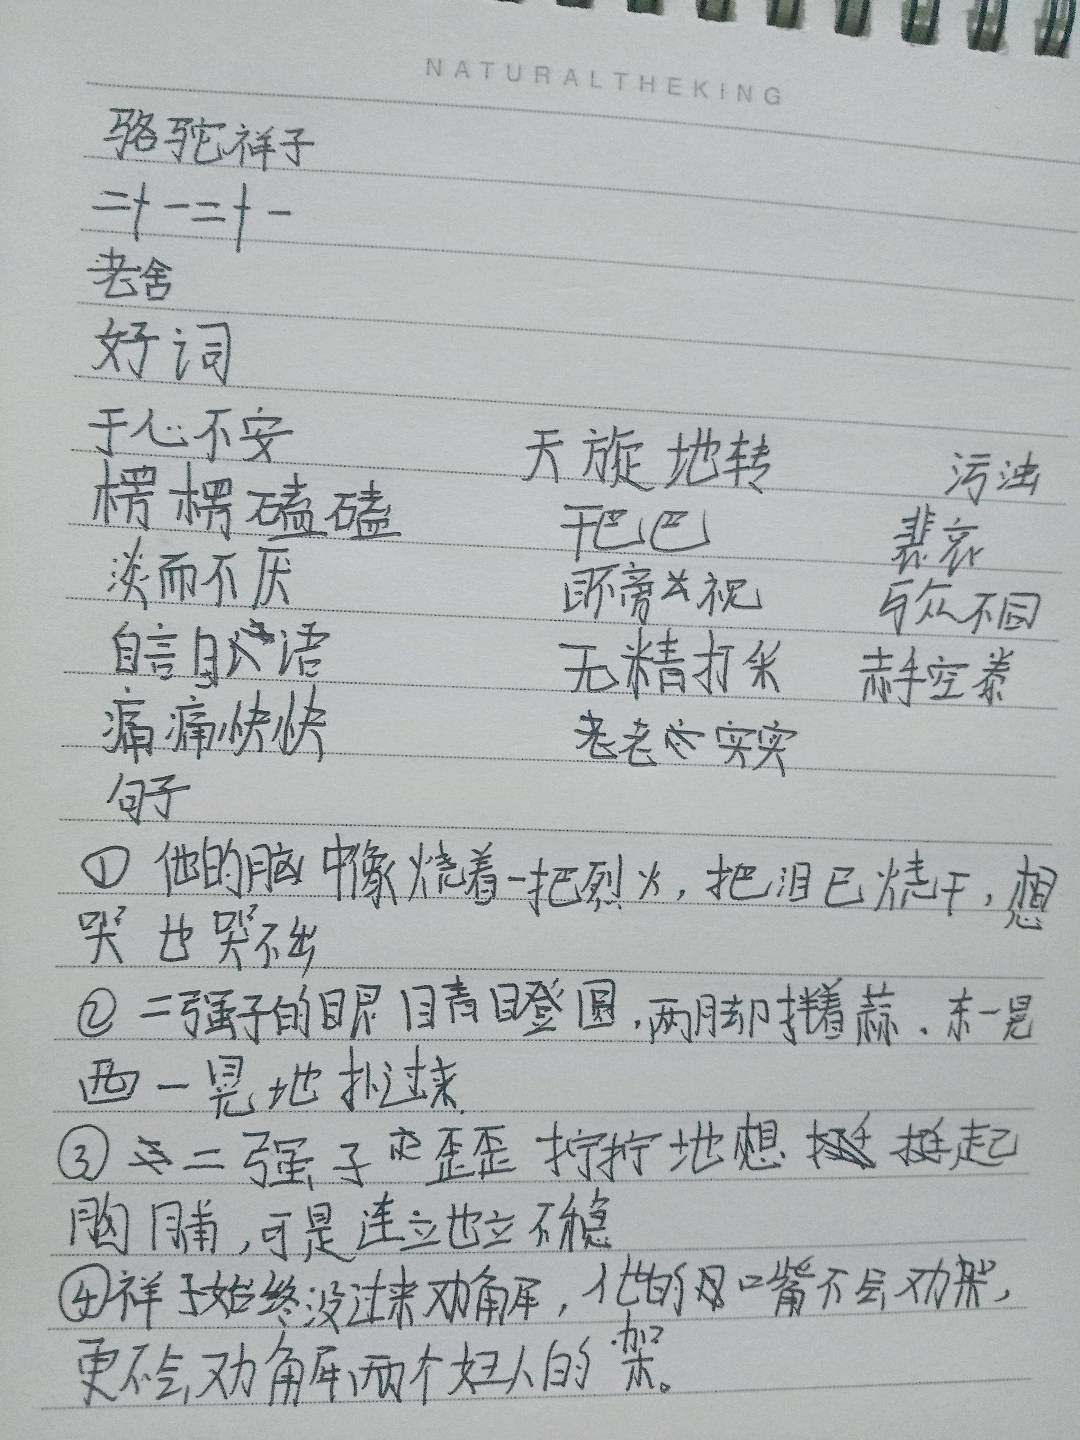 NATURALTHEKING
骆驼祥子
二十一二十一
老舍
好词
于心不安 天旋地转 污浊
楞楞磕磕 干巴巴 悲哀
淡而不厌 旁 视 与众不同
自言自语 无精打采 赤手空拳
痛痛快快 老老实实
句子
① 他的脑中像烧着一把烈火，把泪已烧干，想
哭也哭不出
② 二强子的眼睛瞪圆，两脚拌着蒜、东一晃
西一晃地扑过来
③ 二强子歪歪拧拧地想挺起
胸脯，可是连立也立不稳
④ 祥子始终没过来劝解，他的 口嘴不会劝架，
更不会劝解两个妇人的架。